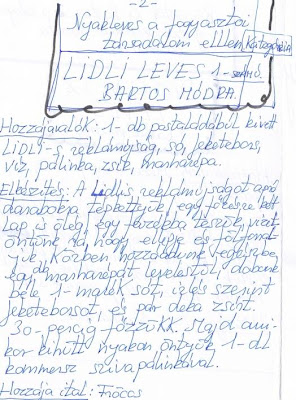 - 2 -
Nyakleves a fogyasztói
társadalom ellen kategória
LIDLI LEVES 1- személő.
BARTOS MÓDRA.
Hozzávalók: 1- db postaládából kivett
LIDLI-s reklámújság, só, feketebors,
víz, pálinka, zsír, marharépa.
Elkészítés: A Lidlis reklámújságot apró
danabokra tépkedjük, egy
lap is elég, egy fazékba tesszük, vizet
öntünk rá, hogy ellepje és fölfőz-
zük. Közben hozzáadunk
db marharépát levelestül, dobunk
bele 1- marék sót, ízlés szerint
feketeborsot, és pár deka zsírt.
30- percig főzzükk. Majd ami-
kor kihűlt nyakon öntjük 1- dl
kommersz szilvapálinkával.
Hozzája ital: Fröccs